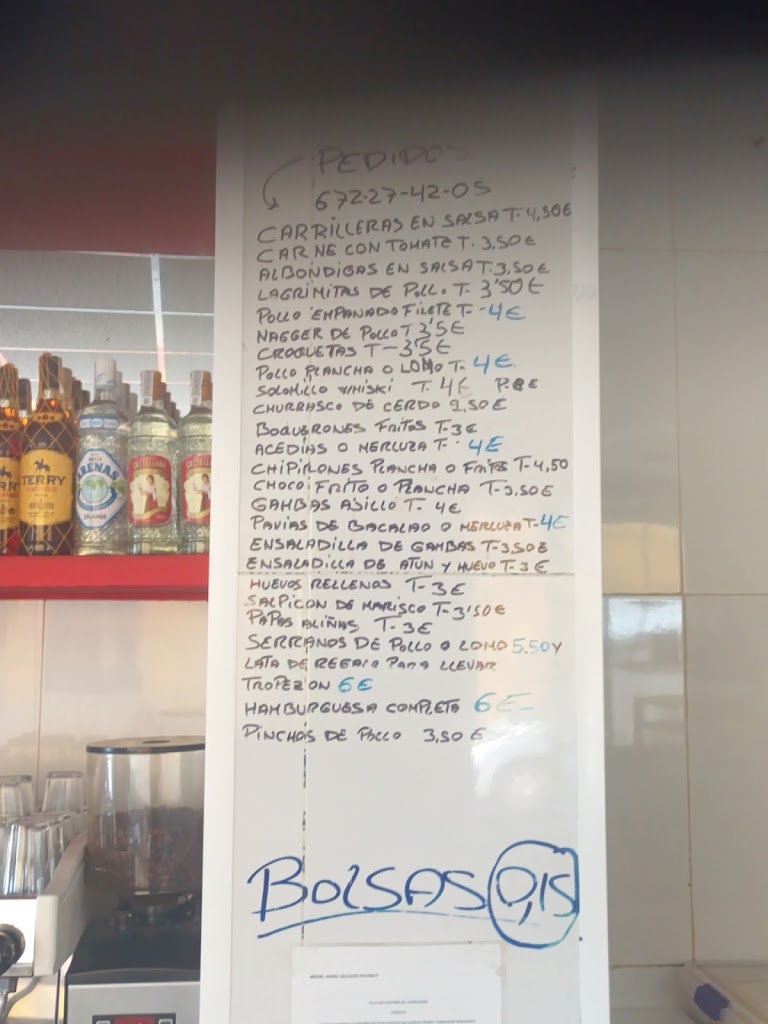 PEDIDOS
672-27-42-05
CARRILLERAS EN SALSA T-4,50€
CARNE CON TOMATE T. 3,50€
ALBONDIGAS EN SALSA T. 3,50€
LAGRIMITAS DE POLLO T- 3'50€
POLLO EMPANADO FILETE T- -4€
NAGGER DE POLLO T 3'5€
CROQUETAS T-3'5€
POLLO PLANCHA O LOMO T. 4€
SOLOMILLO WHISKI T. 4€
CHURRASCO DE CERDO 9,50€
BOQUERONES FRITOS T-3€
ACEDIAS O MERLUZA T- 4€
CHIPIRONES PLANCHA O FRITOS T-4,50
CHOCO FRITO O PLANCHA T-3,50€
GAMBAS AJILLO T- 4€
PAVIAS DE BACALAO O MERLUZA T-4€
ENSALADILLA DE GAMBAS T-3,50€
ENSALADILLA DE ATUN Y HUEVO T-3€
HUEVOS RELLENOS T-3€
SALPICON DE MARISCO T-3'50€
PAPAS ALIÑAS T-3€
SERRANOS DE POLLO O LOMO 5.50 Y
LATA DE REGALO PARA LLEVAR
TROPEZON 6€
HAMBURGUESA COMPLETA 6€-
PINCHOS DE POLLO 3,50€
BOLSAS 0,15
TERRY
ARENAS
CASTELLANA
CASTELLANA